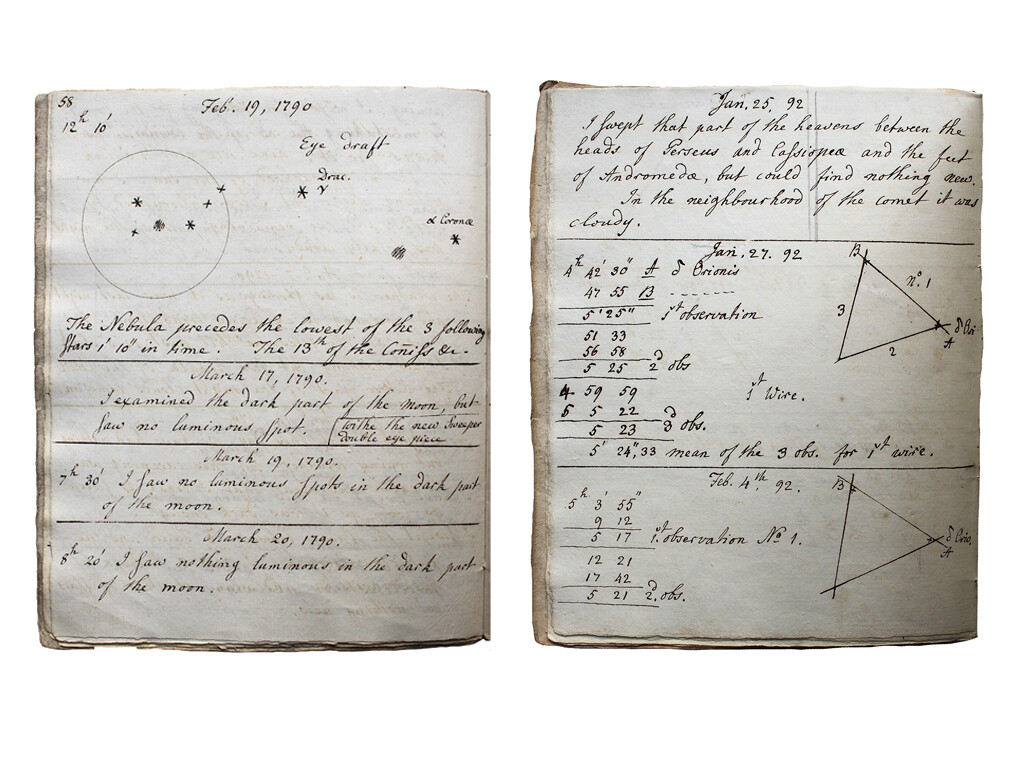 58
Feb. 19, 1790
12h 10'
Eye draft
Drac.
γ
α Coronæ
The Nebula precedes the lowest of the 3 following
stars 1' 10" in time. The 13th of the Conifs &c.
March 17, 1790.
I examined the dark part of the moon, but
saw no luminous spot. (withe the new Sweeper
double eye piece
March 19, 1790.
7h 30' I saw no luminous spots in the dark part
of the moon.
March 20, 1790.
8h 20' I saw nothing luminous in the dark part
of the moon.
Jan. 25, 92
I swept that part of the heavens between the
heads of Perseus and Cassiopeæ and the feet
of Andromedæ, but could find nothing new.
In the neighbourhood of the comet it was
cloudy.
Jan. 27. 92
4h 42' 30" A δ Orionis
47 55 B - - - - - -
5' 25" 1st observation
51 33
56 58
5 25 2d obs
4 59 59
1st Wire.
5 5 22
5 23 3d obs.
5' 24",33 mean of the 3 obs. for 1st wire.
B
no. 1
3
δ Ori
A
2
Feb. 4th, 92.
5h 3' 55"
9 12
5 17 1st observation No 1.
12 21
17 42
5 21 2d obs.
B
δ Orio.
A